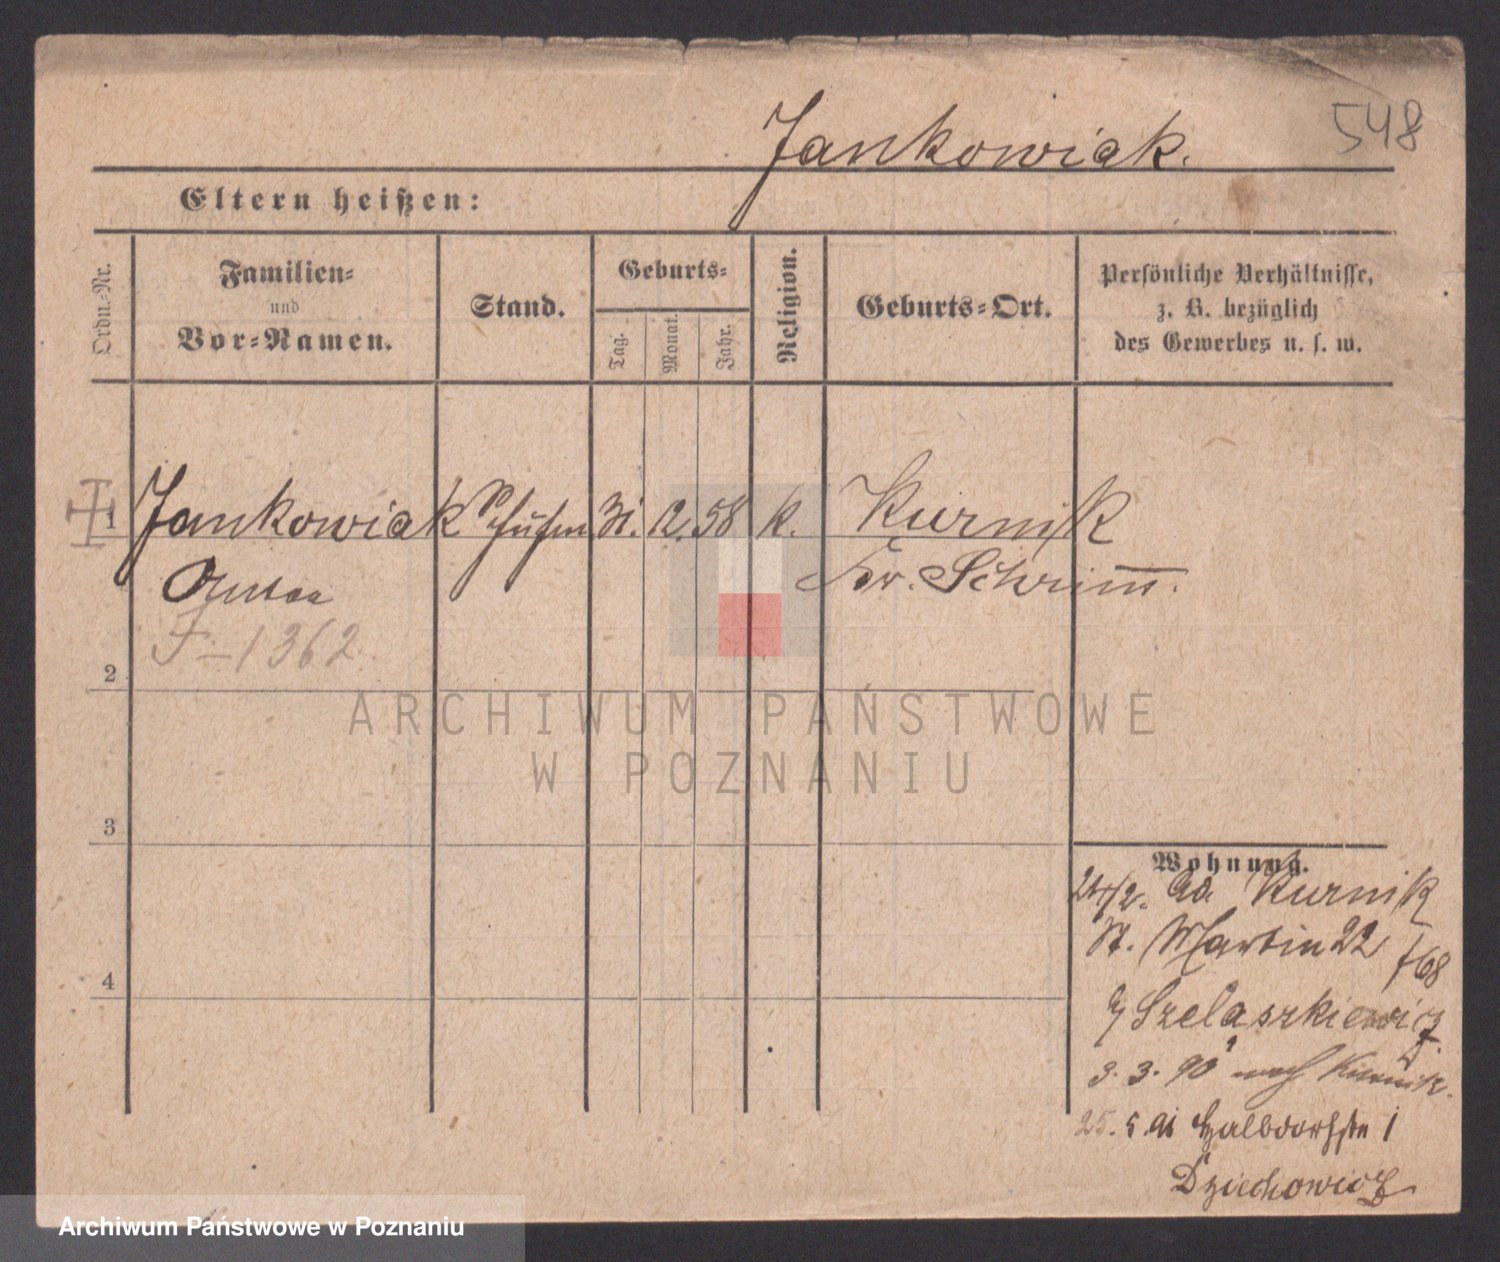 Jankowiak.
548
Eltern heißen:
Ordn.-Nr.
Familien-
und
Vor-Namen.
Stand.
Geburts-
Tag.
Monat.
Jahr.
Religion.
Geburts-Ort.
Persönliche Verhältnisse,
z. B. bezüglich
des Gewerbes u. s. w.
1 Jankowiak 31. 12. 58 k. Kurnik
Anton Kr. Schrimm.
F-1362
2
3
4
Wohnung.
24/2. 90. Kurnik
St. Martin 22 f68
Szelaszkiewicz
3. 3. 90 nach Kurnik.
25. 5. 91 Halbdorfstr 1
Dziechowicz
ARCHIWUM PAŃSTWOWE
W POZNANIU
Archiwum Państwowe w Poznaniu